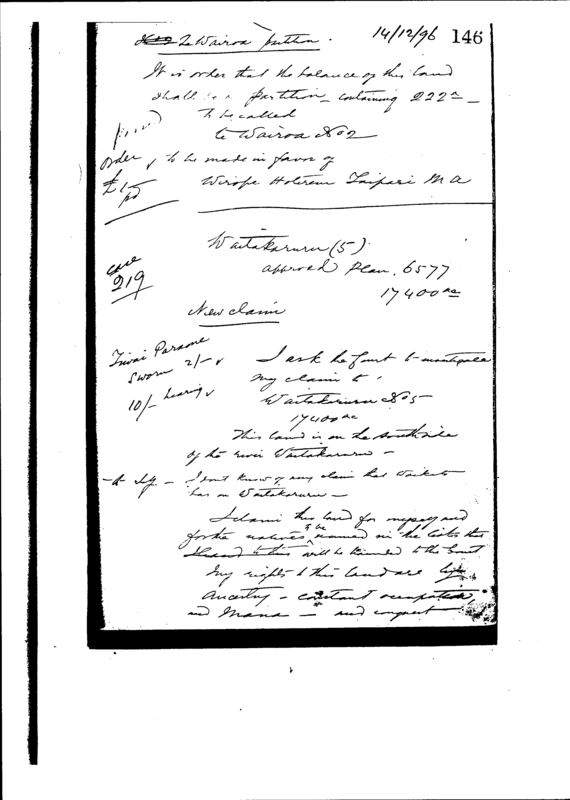 Te Wairoa partition.
14/12/96
146
It is order that the balance of this land
shall be a partition containing 222ac
to be called
te Wairoa No 2
order to be made in favor of
£1/- pd
Wirope Hoterene Taipari M A
Waitakaruru (5)
approved Plan. 6577
17400ac
case
219
New claim
Tiwai Paraone
sworn 2/-
10/- hearing
I ask the Court to investigate
my claim to
Waitakaruru No 5
17400ac
This land is on the south side
of the river Waitakaruru -
I dont know of any claim that Waikato
has in Waitakaruru -
I claim this land for myself and
for the natives to be named in the list
to this will be handed to the Court
My rights to this land are by
Ancestry - constant occupation
and Mana - and conquest